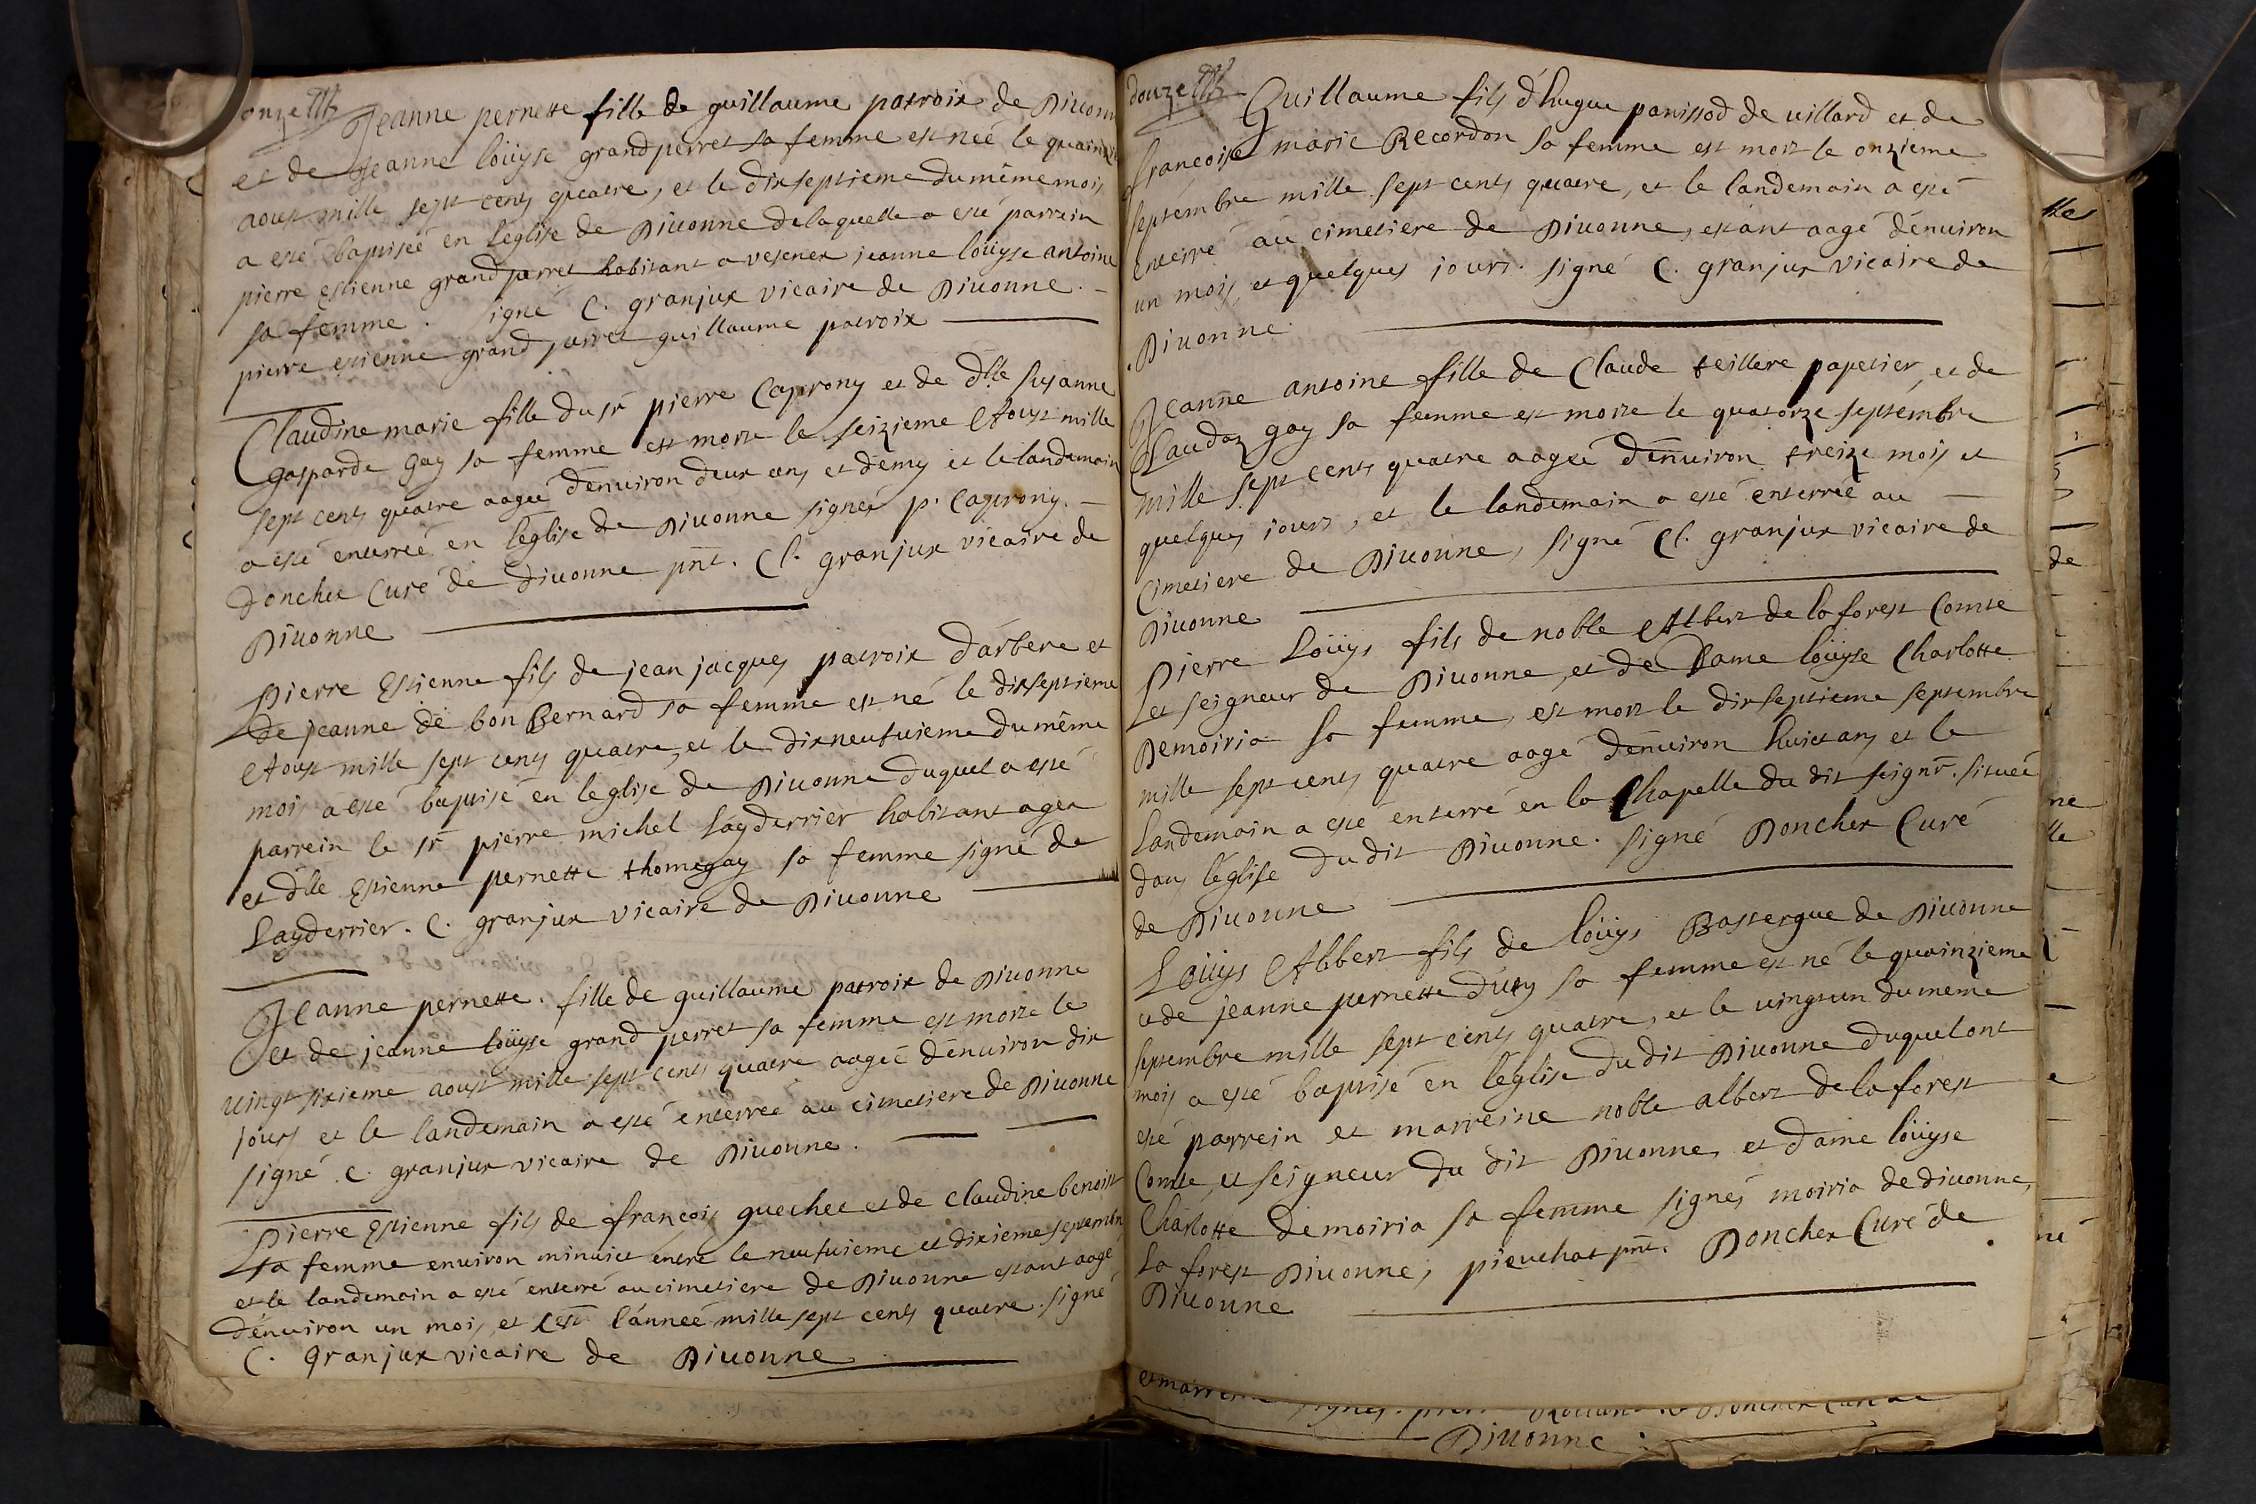 onze
Jeanne pernette fille de guillaume patroix de Diuonne
et de Jeanne loüyse grandperret sa femme est neé le quainzie
aoust mille sept cents quatre, et le dixseptieme du même mois
a esté baptisée en l'eglise de Diuonne de laquelle a esté parrein
pierre estienne grandperret habitant a vesenex jeanne loüyse antoine
sa femme. signé C. granjux vicaire de Diuonne.
pierre estienne grand perret guillaume patroix
Claudine marie fille du sr pierre Caprony et de dlle susanne
gasparde gay sa femme est morte le seizieme Aoust mille
sept cents quatre aageé d'enuiron deux ans et demy et le landemain
a esté enterreé en l'eglise de Diuonne signés p. Caprony.
Donchet Curé de diuonne pnt. Cl. granjux vicaire de
Diuonne
Pierre Estienne fils de jean jacques patroix d'arbere et
de jeanne de bon Bernard sa femme est né le dixseptieme
Aoust mille sept cents quatre, et le dixneufuieme du même
mois a esté baptisé en leglise de Diuonne duquel a esté
parrein le sr pierre michel Layderrier habitant a gex
et dlle estienne pernette thomegay sa femme signé de
Layderrier. C. granjux vicaire de Diuonne
Jeanne pernette. fille de guillaume patroix de Diuonne
et de jeanne loüyse grand perret sa femme est morte le
uingt sixieme aoust mille sept cents quatre aageé d'enuiron dix
jours et le landemain a esté enterreé au cimetiere de Diuonne
signé C. granjux vicaire de Diuonne.
Pierre Estienne fils de françois guechet et de Claudine benoist
sa femme enuiron minuict entre le neufuieme et dixieme septembre
et le landemain a esté enterré au cimetiere de Diuonne estant aagé
d'enuiron un mois, et c'est l'anneé mille sept cents quatre. signé
C. granjux vicaire de Diuonne
douze
Guillaume fils d'hugue panissod de uillard et de
francoise marie Recordon sa femme est mort le onzieme
septembre mille sept cents quatre, et le landemain a esté
enterré au cimetiere de Diuonne, estant aagé d'enuiron
un mois, et quelques jours. signé C. granjux vicaire de
Diuonne.
Jeanne antoine fille de Claude teillere papetier, et de
Claudaz gay sa femme est morte le quatorze septembre
mille sept cents quatre aageé d'enuiron treize mois et
quelques jours, et le landemain a esté enterreé au
Cimetiere de Diuonne, signé Cl. granjux vicaire de
Diuonne
Pierre Loüys fils de noble Albert de la forest Comte
et seigneur de Diuonne, et de Dame loüyse Charlotte
Demoiria sa femme, est mort le dixseptieme septembre
mille sept cents quatre aagé d'enuiron huict ans et le
landemain a esté enterré en la Chapelle du dit seignr. situeé
dans l'eglise du dit Diuonne. signé Donchet Curé
de Diuonne
Loüys Albert fils de loüys Bastergue de Diuonne
et de jeanne pernette duty sa femme est né le quainzieme
septembre mille sept cents quatre, et le uingtun du meme
mois a esté baptisé en l'eglise du dit Diuonne duquel ont
esté parrein et marreine noble albert de la forest
Comte et seigneur du dit Diuonne, et dame loüyse
Charlotte demoiria sa femme signés moiria de diuonne,
La forest Diuonne, pieuchat pnt. Donchet Curé de
Diuonne
et marreine
signés.
Diuonne.